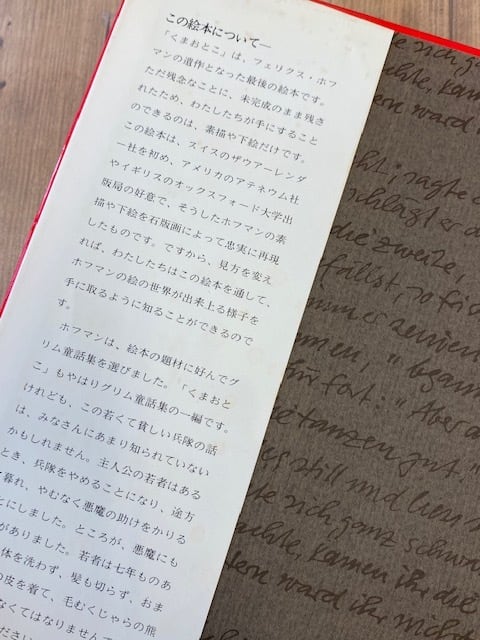 この絵本について―
「くまおとこ」は、フェリクス・ホフ
マンの遺作となった最後の絵本です。
ただ残念なことに、未完成のまま残さ
れたため、わたしたちが手にすること
のできるのは、素描や下絵だけです。
この絵本は、スイスのザウアーレンダ
ー社を初め、アメリカのアテネウム社
やイギリスのオックスフォード大学出
版局の好意で、そうしたホフマンの素
描や下絵を石版画によって忠実に再現
したものです。ですから、見方を変え
れば、わたしたちはこの絵本を通して、
ホフマンの絵の世界が出来上る様子を
手に取るように知ることができるので
す。
ホフマンは、絵本の題材に好んでグ
リム童話集を選びました。「くまおと
こ」もやはりグリム童話集の一編です。
けれども、この若くて貧しい兵隊の話
は、みなさんにあまり知られていない
かもしれません。主人公の若者はある
とき、兵隊をやめることになり、途方
暮れ、やむなく悪魔の助けをかりる
とにしました。ところが、悪魔にも
がありました。若者は七年ものあ
体を洗わず、髪も切らず、おま
の皮を着て、毛むくじゃらの熊
なくてはなりませんで
ださい
sich ganz
achte, kamen
ward
sagte
schlägt
die zweite,
fällst so
immer
fort. Aber
tanzen gut"
still und
sich ganz schwer
achte, kamen ihr die
ward ihr